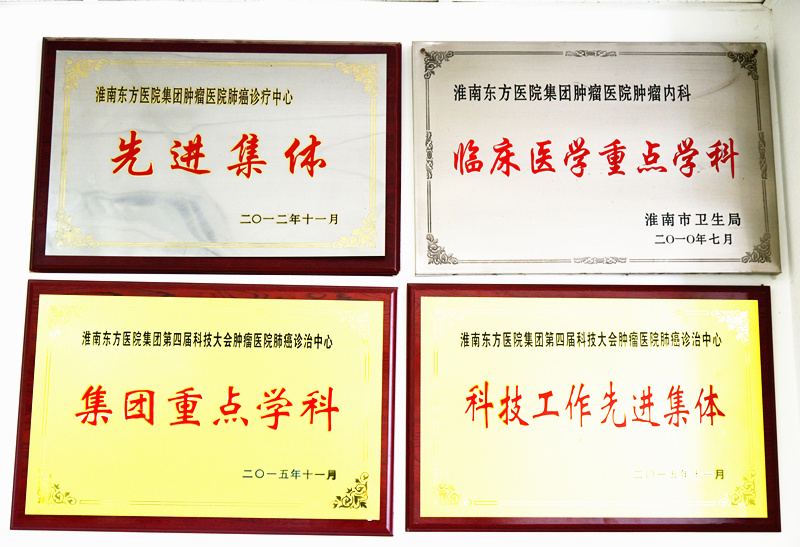 淮南东方医院集团肿瘤医院肺癌诊疗中心
先进集体
二〇一二年十一月
淮南东方医院集团肿瘤医院肿瘤内科
临床医学重点学科
淮南市卫生局
二〇一〇年七月
淮南东方医院集团第四届科技大会肿瘤医院肺癌诊治中心
集团重点学科
二〇一五年十一月
淮南东方医院集团第四届科技大会肿瘤医院肺癌诊治中心
科技工作先进集体
二〇一五年十一月